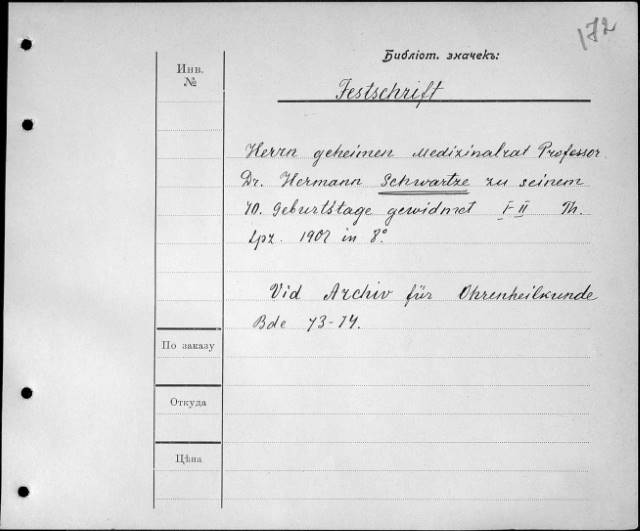 172
Библіот. значекъ:
Инв.
№
Festschrift
Herrn geheimen Medizinalrat Professor
Dr. Hermann Schwartze zu seinem
70. Geburtstage gewidmet I-II Th.
Lpz. 1907 in 8°.
Vid Archiv für Ohrenheilkunde
Bde 73-74.
По заказу
Откуда
Цѣна